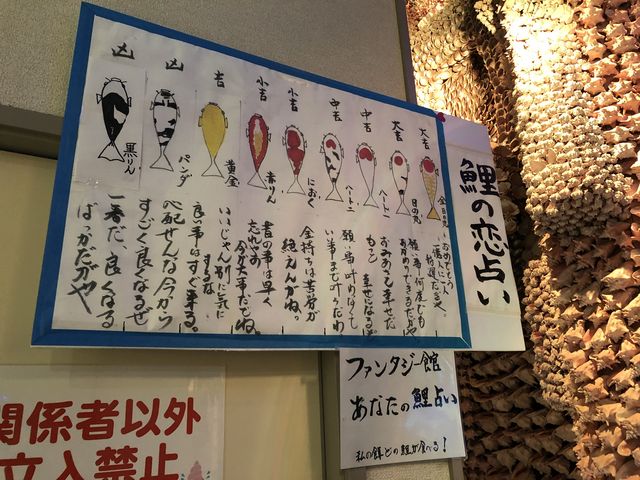 鯉の恋占い
大吉
おめでとう
大吉
日の丸
願い事何度でも
中吉
ハート一
もっと幸せになるぞ
中吉
ハート二
願い事叶わなくて
い事まで叶うだわ
小吉
におく
金持ちは苦労が
絶えんがね。
小吉
赤りん
昔の事は早く
忘れ
今が大事だでね。
吉
黄金
いいじゃん別に気に
するな
良い事はすぐ来する。
凶
パンダ
心配せんな今から
すごく良くなるぜ
凶
黒りん
一番だ、良くなる
ばっかだがや
ファンタジー館
あなたの鯉占い
私の餌どの鯉が食べる!
関係者以外
立入禁止